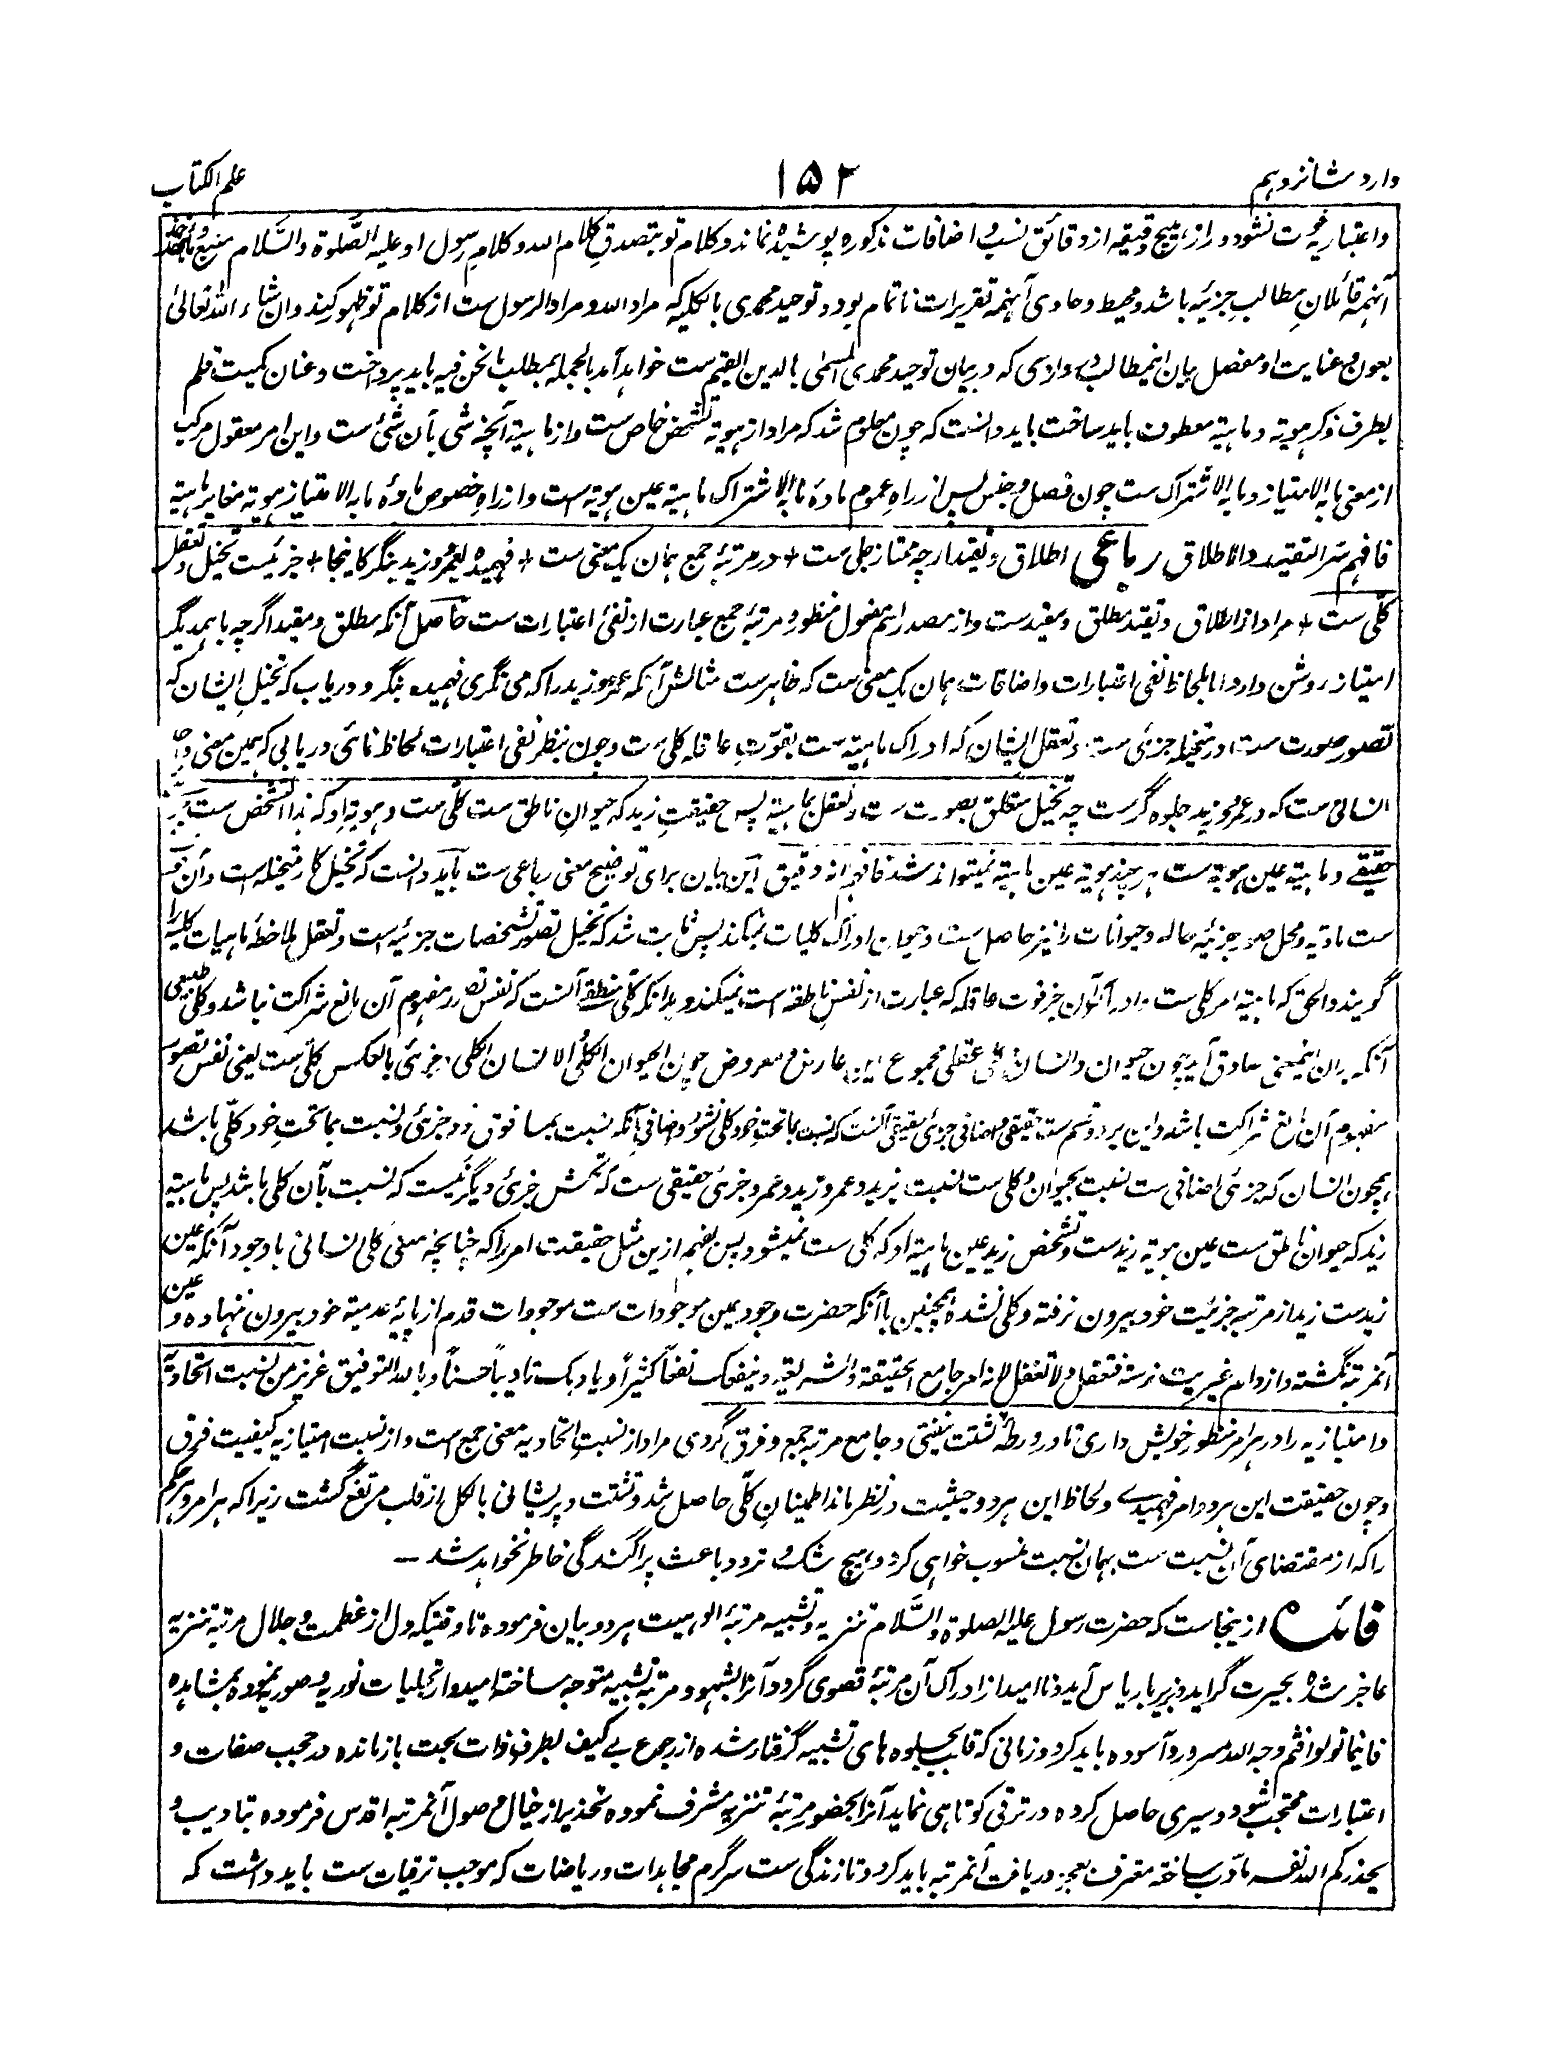 وارد شانزدهم
۱۵۲
علم الکتاب
واعتباریه فوت نشود و راز هیچ دقیقه از دقائق نسب و اضافات مذکوره پوشیده نماند و کلام تو بتصدق کلام الله و کلام رسول او علیه الصلوة والسلام منبع و مأخذ
آنهمه قائلان مطالب جزئیه باشد و محیط و حاوی آنهمه تقریرات ناتمام بود و توحید محمدی بالکلیه که مراد الله و مراد الرسول ست از کلام تو ظهور کند و ان شاء الله تعالیٰ
بعون و عنایت او مفصل بیان اینمطالب در واردی که در بیان توحید محمدی المسمیٰ بالدین القیم ست خواهد آمد بالجمله بمطلب ما نحن فیه باید پرداخت و عنان کمیت قلم
بطرف ذکر هویة و ماهیة معطوف باید ساخت باید دانست که چون معلوم شد که مراد از هویة تشخص خاص ست و از ماهیة آنچه شی بآن شئ ست و این امر معقول مرکب
از معنی ما به الامتیاز و ما به الاشتراک ست چون فصل و جنس پس از راه عموم ماده ما به الاشتراک ماهیة عین هویة ست و از راه خصوص ماده ما به الامتیاز هویة مغایر ماهیة
فافهم سر التقید والاطلاق رباعی اطلاق و تقید ارچه ممتاز جلی ست + در مرتبهٔ جمع همان یک معنی ست + فهمیده بعمرو زید بنگر کاینجا + جزئیست تخیل و تعقل
کلی ست + مراد از اطلاق و تقید مطلق و مقید ست و از مصدر اسم مفعول منظور و مرتبهٔ جمع عبارت از نفئ اعتبارات ست حاصل آنکه مطلق و مقید اگرچه باهمدیگر
امتیاز روشن دارد اما بلحاظ نفی اعتبارات و اضافات همان یک معنی ست که ظاهر ست مثالش آنکه عمرو زید را که می نگری فهمیده بنگر و دریاب که تخیل ایشان که
تصور صورت ست در متخیله جزئی ست و تعقل ایشان که ادراک ماهیة ست بقوّت عاقله کلی ست و چون بنظر نفی اعتبارات لحاظ نمائی دریابی که همین معنی واحد
انسانی ست که در عمرو زید جلوه گر ست چه تخیل متعلق بصورت ست و تعقل بماهیة پس حقیقت زید که حیوان ناطق ست کلی ست و هویة او که هذا الشخص ست
حقیقے و ماهیة عین هویة ست هر چند هویة عین ماهیة نمیتواند شد فافهم انه دقیق این بیان برای توضیح معنی رباعی ست باید دانست که تخیل کار متخیله است و آن
ست مادیه و محل صور جزئیه حاله و حیوانات را نیز حاصل ست و حیوان ادراک کلیات نمیکند پس ثابت شد که تخیل تصور تشخصات جزئیه است و تعقل ملاحظهٔ ماهیات کلیه را
گویند والحق که ماهیة امر کلی ست و ادراک آن جز قوت عاقله که عبارت از نفس ناطقه است نمیکند و بدانکه کلی منطقی آنست که نفس تصور مفهوم آن مانع شراکت نباشد و کلی طبیعی
آنکه بران اینمعنی صادق آید چون حیوان و انسان و کلی عقلی مجموع این عارض و معروض چون الحیوان الکلی والانسان الکلی و جزئی بالعکس کلی ست یعنی نفس تصور
مفهوم آن مانع شراکت باشد و این بر دو قسم ست حقیقی و اضافی جزئی حقیقی آنست که نسبت بما تحت خود کلی نشود و اضافی آنکه نسبت بما فوق خود جزئی و نسبت بما تحت خود کلی باشد
همچون انسان که جزئی اضافی ست نسبت بحیوان و کلی ست نسبت بزید و عمرو و زید و عمرو جزئی حقیقی ست که تحتش جزئی دیگر نیست که نسبت بآن کلی باشد پس ماهیة
زید که حیوان ناطق ست عین هویة زید ست و تشخص زید عین ماهیة او که کلی ست نمیشود پس بفهم ازین مثل حقیقت امر را که چنانچه معنی کلی انسانی باوجود آنکه عین
زید ست زید از مرتبه جزئیت خود بیرون نرفته و کلی نشده همچنین با آنکه حضرت وجود عین موجودات ست موجودات قدم از پایهٔ عدمیة خود بیرون ننهاده و عین
آنمرتبه نگشته و از دام غیریت نرسته فتعقل ولا تغفل لانه امر جامع الحقیقة والشریعة وینفعک نفعاً کثیراً ویادبک تادیباً حسناً وبالله التوفیق عزیز من نسبت اتحادیه
و امتیازیه را در هر امر منظور خویش داری تا در ورطهٔ تشتت نیفتی و جامع مرتبه جمع و فرق گردی مراد از نسبت اتحادیه معنی جمع است و از نسبت امتیازیه کیفیت فرق
و چون حقیقت این هر دو امر فهمیدے و لحاظ این هر دو حیثیت در نظر ماند اطمینان کلی حاصل شد و تشتت و پریشانی بالکل از قلب مرتفع گشت زیرا که هر امر و هر حکم
را که از مقتضای آن نسبت ست بهمان نسبت منسوب خواهی کرد و هیچ شک و تردد باعث پراگندگی خاطر نخواهد شد —
فائده ازینجاست که حضرت رسول علیه الصلوة والسلام تنزیه و تشبیه مرتبهٔ الوهیت هر دو بیان فرموده تا وقتیکه دل از عظمت و جلال مرتبه تنزیه
عاجز شده بحیرت گراید و زیر بار یاس آید و ناامید از ادراک آن مرتبهٔ قصوی گردد آنرا بشهود مرتبه تشبیه متوجه ساخته امیدوار تجلیات نوریه و صوریه نموده بمشاهده
فاینما تولوا فثم وجه الله مسرور و آسوده باید کرد و زمانی که قلب بجلوه های تشبیه گرفتار شده از رجوع بے کیف بطرف ذات بحت بازمانده در حجب صفات و
اعتبارات محتجب شود و سیری حاصل کرده در ترقی کوتاهی نماید آنرا بحضور مرتبهٔ تنزیه مشرف نموده تحذیر از خیال وصول آنمرتبه اقدس فرموده بتادیب و
یحذرکم الله نفسه مأدب ساخته معترف بعجز دریافت آنمرتبه باید کرد و تا زندگی ست سرگرم مجاهدات و ریاضات که موجب ترقیات ست باید داشت که